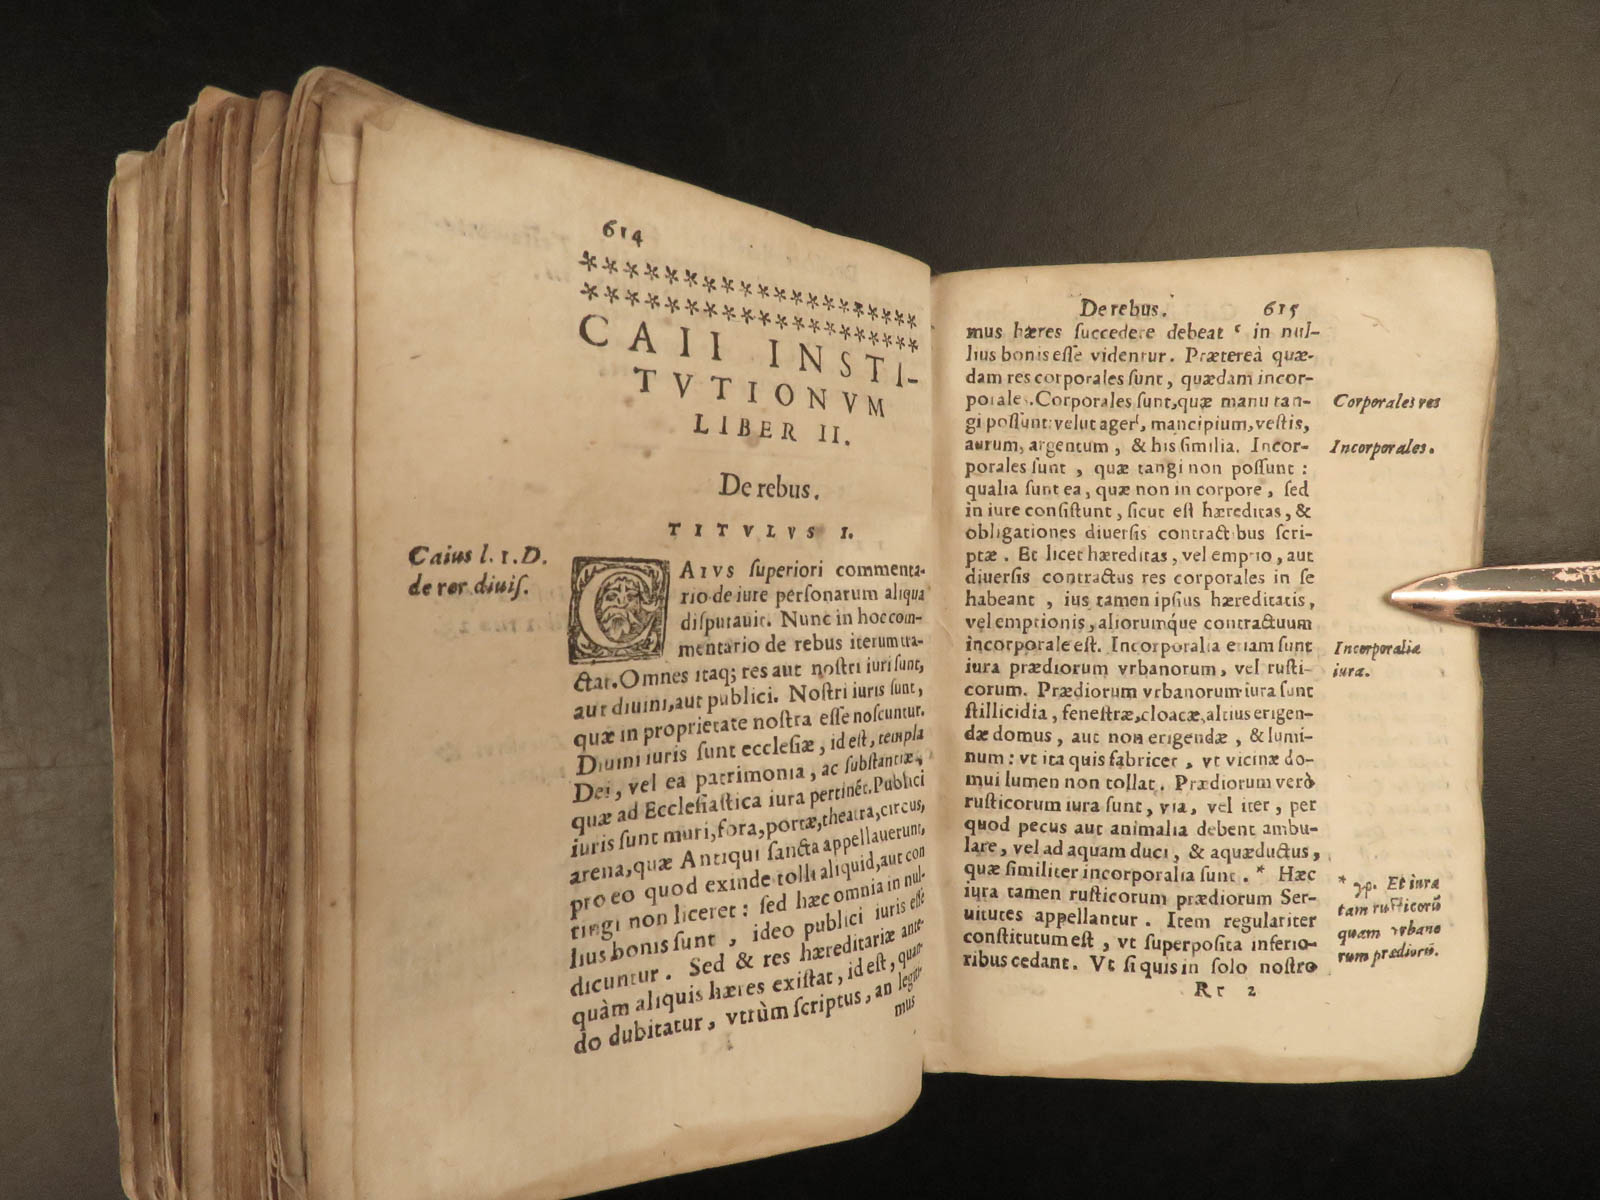 614
CAII INSTI-
TVTIONVM
LIBER II.
De rebus.
TITVLVS I.
Caius l. 1. D.
de rer diuiſ.
CAIVS ſuperiori commenta-
rio de iure perſonarum aliqua
diſputauit. Nunc in hoc com-
mentario de rebus iterum tra-
ctat. Omnes itaq; res aut noſtri iuri ſunt,
aut diuini, aut publici. Noſtri iuris ſunt,
quæ in proprietate noſtra eſſe noſcuntur.
Diuini iuris ſunt eccleſiæ, id eſt, templa
Dei, vel ea patrimonia, ac ſubſtantiæ,
quæ ad Eccleſiaſtica iura pertinēt. Publici
iuris ſunt muri, fora, portæ, theatra, circus,
arena, quæ Antiqui ſancta appellauerunt,
pro eo quod exinde tolli aliquid, aut con
tingi non liceret: ſed hæc omnia in nul-
lius bonis ſunt, ideo publici iuris eſſe
dicuntur. Sed & res hæreditariæ ante-
quàm aliquis hæres exiſtat, id eſt, quan-
do dubitatur, vtrùm ſcriptus, an legiti-
mus
De rebus. 615
mus hæres ſuccedere debeat in nul-
lius bonis eſſe videntur. Prætereà quæ-
dam res corporales ſunt, quædam incor-
porales. Corporales ſunt, quæ manu tan-
gi poſſunt: velut ager, mancipium, veſtis,
aurum, argentum, & his ſimilia. Incor-
porales ſunt, quæ tangi non poſſunt:
qualia ſunt ea, quæ non in corpore, ſed
in iure conſiſtunt, ſicut eſt hæreditas, &
obligationes diuerſis contractibus ſcri-
ptæ. Et licet hæreditas, vel emptio, aut
diuerſis contractus res corporales in ſe
habeant, ius tamen ipſius hæreditatis,
vel emptionis, aliorumque contractuum
incorporale eſt. Incorporalia etiam ſunt
iura prædiorum vrbanorum, vel ruſti-
corum. Prædiorum vrbanorum iura ſunt
ſtillicidia, feneſtræ, cloacæ, altius erigen-
dæ domus, aut non erigendæ, & lumi-
num: vt ita quis fabricet, vt vicinæ do-
mui lumen non tollat. Prædiorum verò
ruſticorum iura ſunt, via, vel iter, per
quod pecus aut animalia debent ambu-
lare, vel ad aquam duci, & aquæductus,
quæ ſimiliter incorporalia ſunt. * Hæc
iura tamen ruſticorum prædiorum Ser-
uitutes appellantur. Item regulariter
conſtitutum eſt, vt ſuperpoſita inferio-
ribus cedant. Vt ſi quis in ſolo noſtro
Rr 2
Corporales res
Incorporales.
Incorporalia
iura.
* γρ. Et iura
tam ruſticorū
quam vrbano
rum prædiorū.